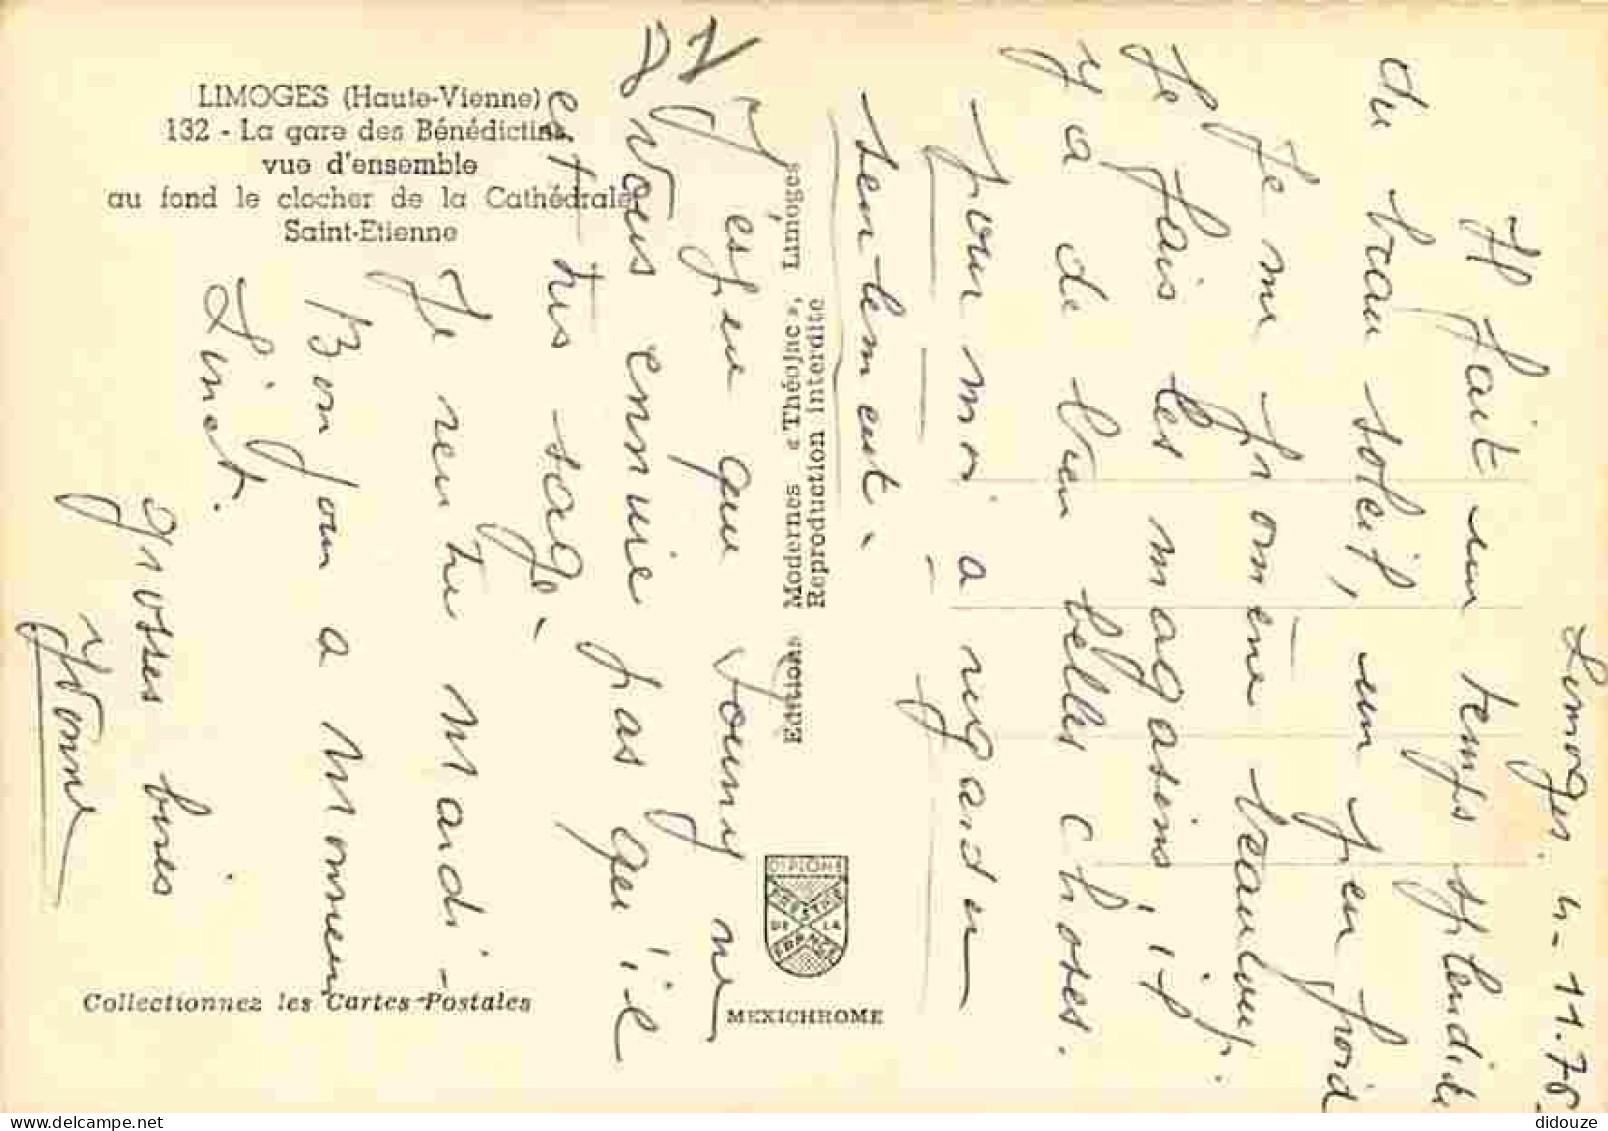 LIMOGES (Haute-Vienne)
132 - La gare des Bénédictins,
vue d'ensemble
au fond le clocher de la Cathédrale
Saint-Etienne
Editions Modernes « Théojac », Limoges
Reproduction interdite
Collectionnez les Cartes-Postales
DIPLOME
PRESTIGE
DE LA
FRANCE
MEXICHROME
Limoges. 4-11.76
Il fait un temps splendide
du beau soleil, un peu froid
Je me promène beaucoup.
Je fais les magasins, il
y a de bien belles choses.
pour moi a regarder
seulement.
J'espère que Joumy ne
vous ennuie pas qu'il
est très sage.
Je rentre Mardi -
Bonjour a Monsieur
Linet.
grosses bises
Yvonne
didouze